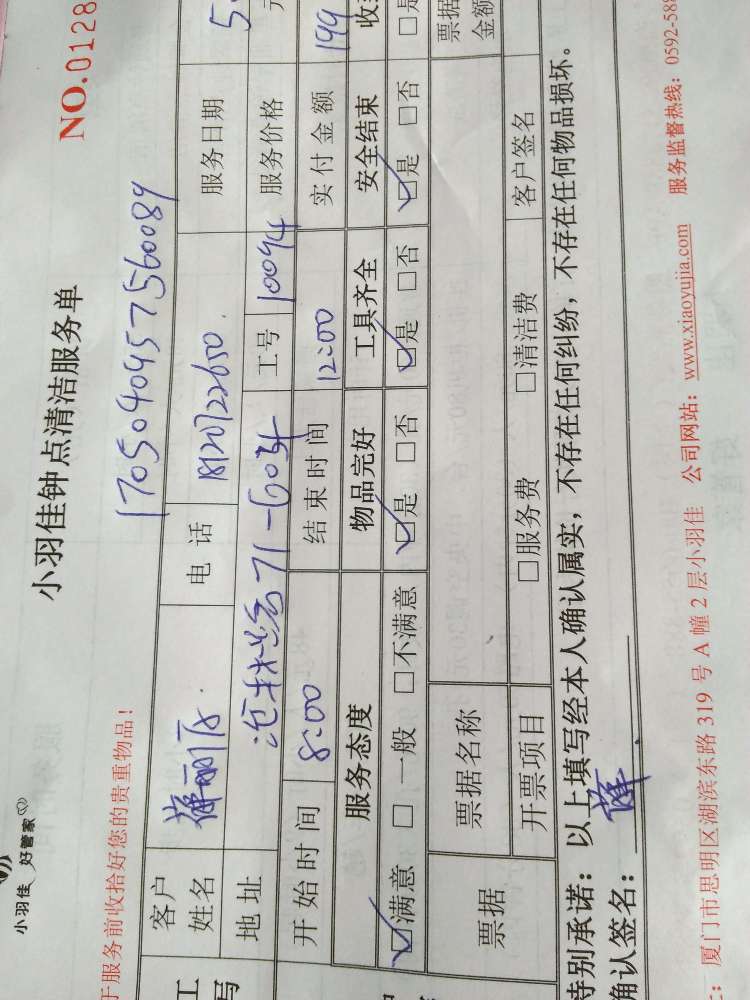 小羽佳 好管家
小羽佳钟点清洁服务单
NO.0128
于服务前收拾好您的贵重物品！
17050404575560089
客户姓名 电话 18120722650. 服务日期 5.
地址 71-6034 工号 10094 服务价格 元
开始时间 8:00 结束时间 12:00 实付金额 199
服务态度 物品完好 工具齐全 安全结束 收
☑满意 □一般 □不满意 ☑是 □否 ☑是 □否 ☑是 □否 □是
票据 票据名称 票据金额
开票项目 □服务费 □清洁费 客户签名
特别承诺：以上填写经本人确认属实，不存在任何纠纷，不存在任何物品损坏。
确认签名：薛
厦门市思明区湖滨东路 319 号 A 幢 2 层小羽佳 公司网站：www.xiaoyujia.com 服务监督热线：0592-588